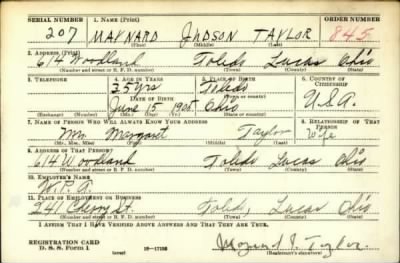 SERIAL NUMBER 1. NAME (Print) ORDER NUMBER
207 MAYNARD JUDSON TAYLOR 845
(First) (Middle) (Last)
2. ADDRESS (Print)
614 Woodland Toledo Lucas Ohio
(Number and street or R. F. D. number) (Town) (County) (State)
3. TELEPHONE 4. AGE IN YEARS 5. PLACE OF BIRTH 6. COUNTRY OF CITIZENSHIP
35 yrs Toledo
DATE OF BIRTH (Town or county)
June 15 Ohio U.S.A.
(Exchange) (Number) (Mo.) (Day) (Yr.) (State or country)
7. NAME OF PERSON WHO WILL ALWAYS KNOW YOUR ADDRESS 8. RELATIONSHIP OF THAT PERSON
Mrs. Margaret Taylor Wife
(Mr., Mrs., Miss) (First) (Middle) (Last)
9. ADDRESS OF THAT PERSON
614 Woodland Toledo Lucas Ohio
(Number and street or R. F. D. number) (Town) (County) (State)
10. EMPLOYER'S NAME
W.P.A.
11. PLACE OF EMPLOYMENT OR BUSINESS
241 St. Toledo, Lucas Ohio
(Number and street or R. F. D. number) (Town) (County) (State)
I AFFIRM THAT I HAVE VERIFIED ABOVE ANSWERS AND THAT THEY ARE TRUE.
REGISTRATION CARD
D. S. S. Form 1 (over) 16-17105 Maynard J. Taylor
(Registrant's signature)